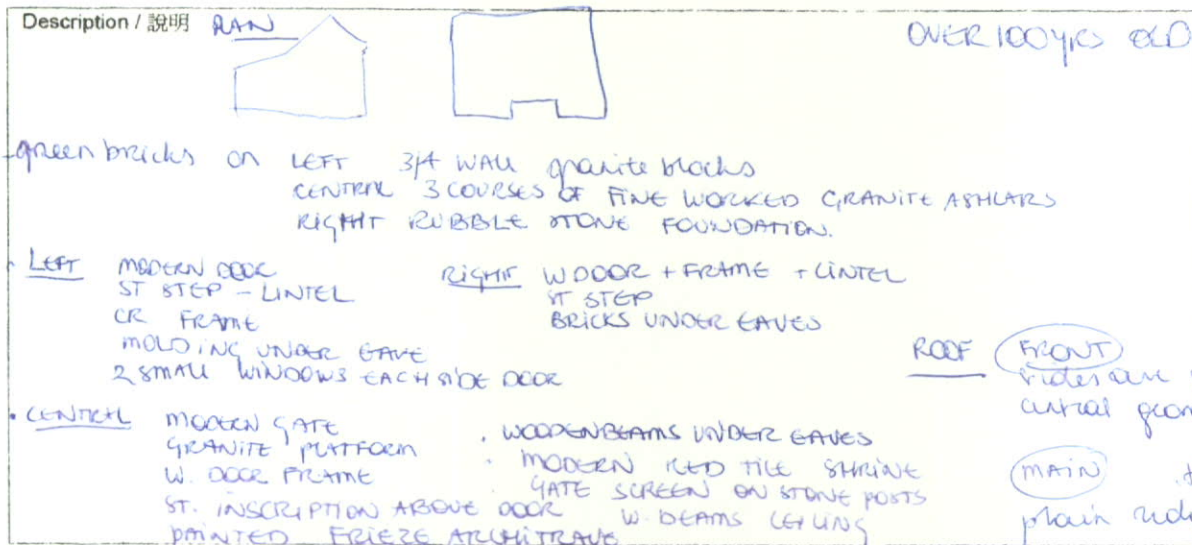 Description / 說明 RAN
OVER 100 yrs OLD
- green bricks on LEFT 3/4 WALL granite blocks
CENTRAL 3 COURSES OF FINE WORKED GRANITE ASHLARS
RIGHT RUBBLE STONE FOUNDATION.
- LEFT MODERN DOOR
ST STEP - LINTEL
CR FRAME
MOLDING UNDER EAVE
2 SMALL WINDOWS EACH SIDE DOOR
RIGHT W DOOR + FRAME + LINTEL
ST STEP
BRICKS UNDER EAVES
ROOF FRONT
central geom
MAIN
plain
• CENTRAL MODERN GATE
GRANITE PLATFORM
W. DOOR FRAME
ST. INSCRIPTION ABOVE DOOR
PAINTED FRIEZE ARCHITRAVE
. WOODEN BEAMS UNDER EAVES
. MODERN RED TILE SHRINE
GATE SCREEN ON STONE POSTS
W. BEAMS CEILING